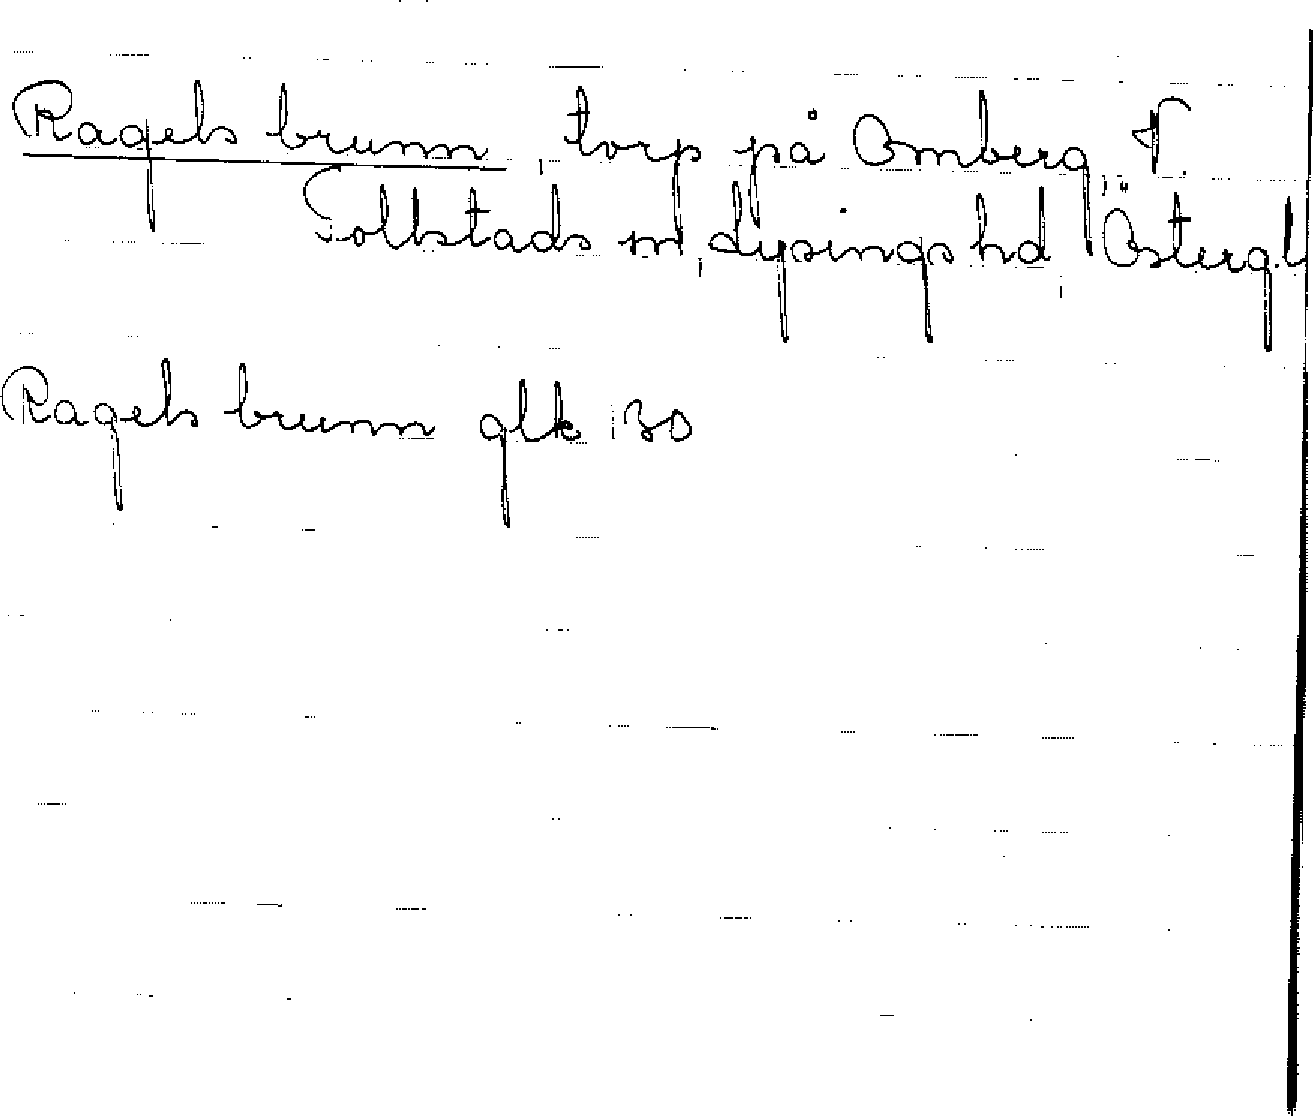 Ragels brunn, torp på Omberg, V
Tollstads sn, Lysings hd, Östergl
Ragels brunn glk 130